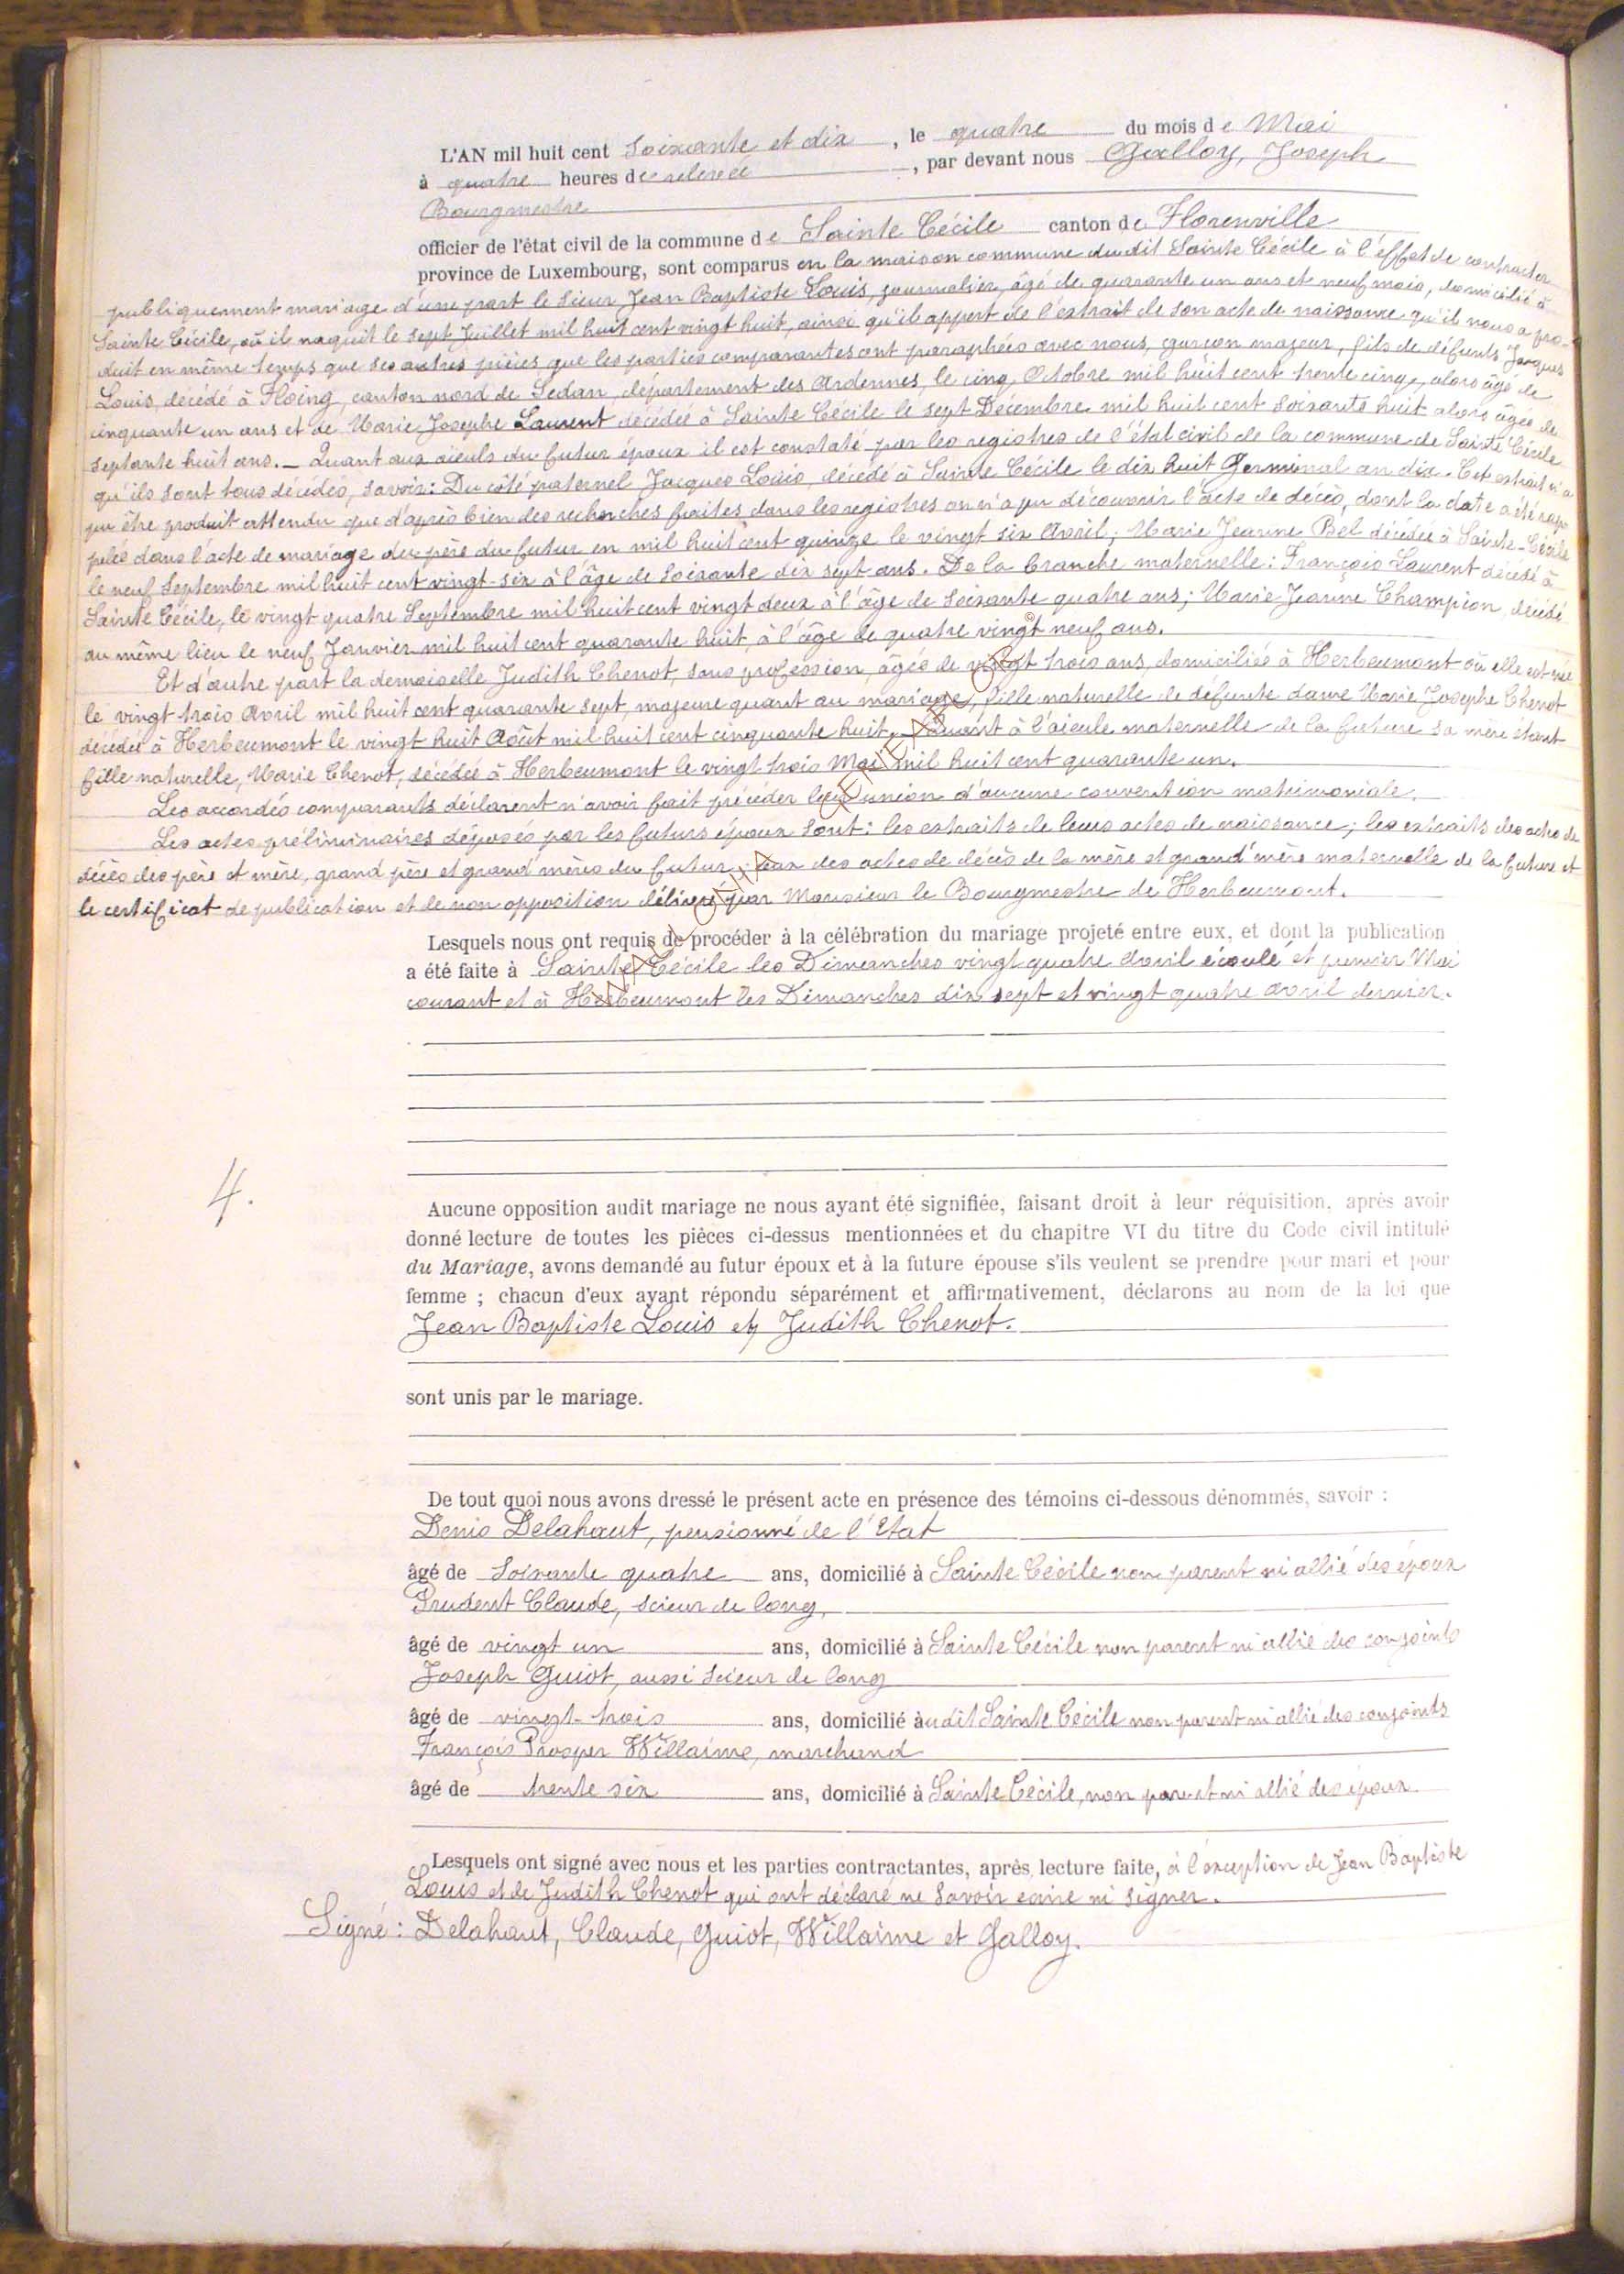 L'AN mil huit cent soixante et dix, le quatre du mois de Mai
à quatre heures de relevée, par devant nous Galloy, Joseph
Bourgmestre
officier de l'état civil de la commune de Sainte Cécile canton de Florenville
province de Luxembourg, sont comparus en la maison commune dudit Sainte Cécile à l'effet de contracter
publiquement mariage d'une part le sieur Jean Baptiste Louis, journalier, âgé de quarante un ans et neuf mois, domicilié à
Sainte Cécile, où il naquit le sept Juillet mil huit cent vingt huit, ainsi qu'il appert de l'extrait de son acte de naissance qu'il nous a pro-
duit en même temps que ses autres pièces que les parties comparantes ont paraphées avec nous, garçon majeur, fils de défunts Jacques
Louis, décédé à Floing, canton nord de Sedan, département des Ardennes, le cinq Octobre mil huit cent trente cinq, alors âgé de
cinquante un ans et de Marie Josephe Laurent décédée à Sainte Cécile le sept Décembre mil huit cent soixante huit alors âgée de
septante huit ans. _ Quant aux aïeuls du futur époux il est constaté par les registres de l'état civil de la commune de Sainte Cécile
qu'ils sont tous décédés, savoir: Du côté paternel Jacques Louis, décédé à Sainte Cécile le dix huit Germinal an dix. Cet extrait n'a
pu être produit attendu que d'après bien des recherches faites dans les registres on n'a pu découvrir l'acte de décès, dont la date a été rap
pelée dans l'acte de mariage du père du futur en mil huit cent quinze le vingt six Avril; Marie Jeanne Bel décédée à Sainte-Cécile
le neuf Septembre mil huit cent vingt-six à l'âge de soixante dix sept ans. De la branche maternelle: François Laurent décédé à
Sainte Cécile, le vingt quatre Septembre mil huit cent vingt deux à l'âge de soixante quatre ans; Marie Jeanne Champion, décédé
au même lieu le neuf Janvier mil huit cent quarante huit, à l'âge de quatre vingt neuf ans.
Et d'autre part la demoiselle Judith Chenot, sans profession, âgée de vingt trois ans, domiciliée à Herbeumont où elle est née
le vingt trois Avril mil huit cent quarante sept, majeure quant au mariage, fille naturelle de défunte dame Marie Josephe Chenot
décédée à Herbeumont le vingt huit Août mil huit cent cinquante huit. Quant à l'aïeule maternelle de la future sa mère étant
fille naturelle, Marie Chenot, décédée à Herbeumont le vingt trois Mai mil huit cent quarante un.
Les accordés comparants déclarent n'avoir fait précéder leur union d'aucune convention matrimoniale.
Les actes préliminaires déposés par les futurs époux sont: les extraits de leurs actes de naissance; les extraits des actes de
décès des père et mère, grand père et grand'mères du futur; ceux des actes de décès de la mère et grand'mère maternelle de la future et
le certificat de publication et de non opposition délivré par Monsieur le Bourgmestre de Herbeumont.
Lesquels nous ont requis de procéder à la célébration du mariage projeté entre eux, et dont la publication
a été faite à Sainte Cécile les Dimanches vingt quatre Avril écoulé et premier Mai
courant et à Herbeumont les Dimanches dix sept et vingt quatre Avril dernier.
4.
Aucune opposition audit mariage ne nous ayant été signifiée, faisant droit à leur réquisition, après avoir
donné lecture de toutes les pièces ci-dessus mentionnées et du chapitre VI du titre du Code civil intitulé
du Mariage, avons demandé au futur époux et à la future épouse s'ils veulent se prendre pour mari et pour
femme ; chacun d'eux ayant répondu séparément et affirmativement, déclarons au nom de la loi que
Jean Baptiste Louis et Judith Chenot.
sont unis par le mariage.
De tout quoi nous avons dressé le présent acte en présence des témoins ci-dessous dénommés, savoir :
Denis Delahaut, pensionné de l'Etat
âgé de soixante quatre ans, domicilié à Sainte Cécile non parent ni allié des époux
Prudent Claude, scieur de long,
âgé de vingt un ans, domicilié à Sainte Cécile non parent ni allié des conjoints
Joseph Guiot, aussi scieur de long
âgé de vingt-trois ans, domicilié àudit Sainte Cécile non parent ni allié des conjoints
François Prosper Willaime, marchand
âgé de trente six ans, domicilié à Sainte Cécile, non parent ni allié des époux.
Lesquels ont signé avec nous et les parties contractantes, après lecture faite, à l'exception de Jean Baptiste
Louis et de Judith Chenot qui ont déclaré ne savoir écrire ni signer.
Signé: Delahaut, Claude, Guiot, Willaime et Galloy.